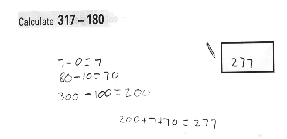 Calculate 317 – 180
7-0=7
80-10=70
300-100=200
200+7+70=277
277